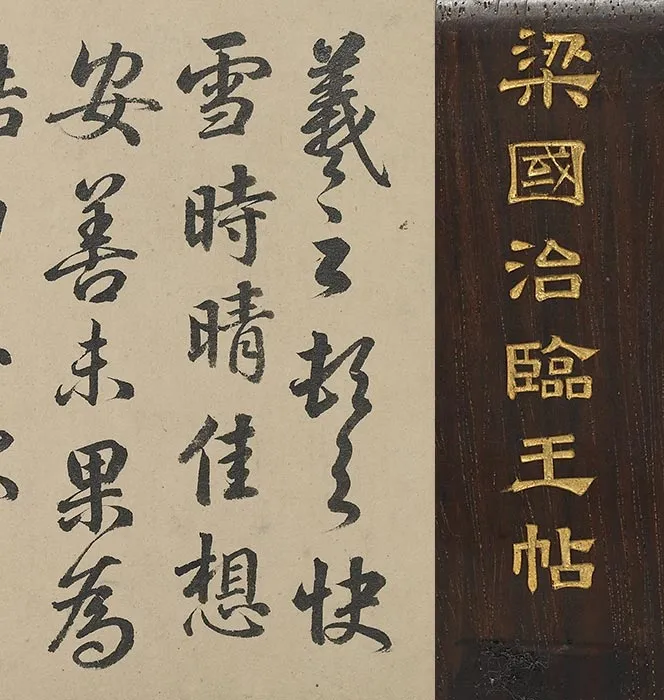 梁國治臨王帖
羲之頓首快
雪時晴佳想
安善未果為